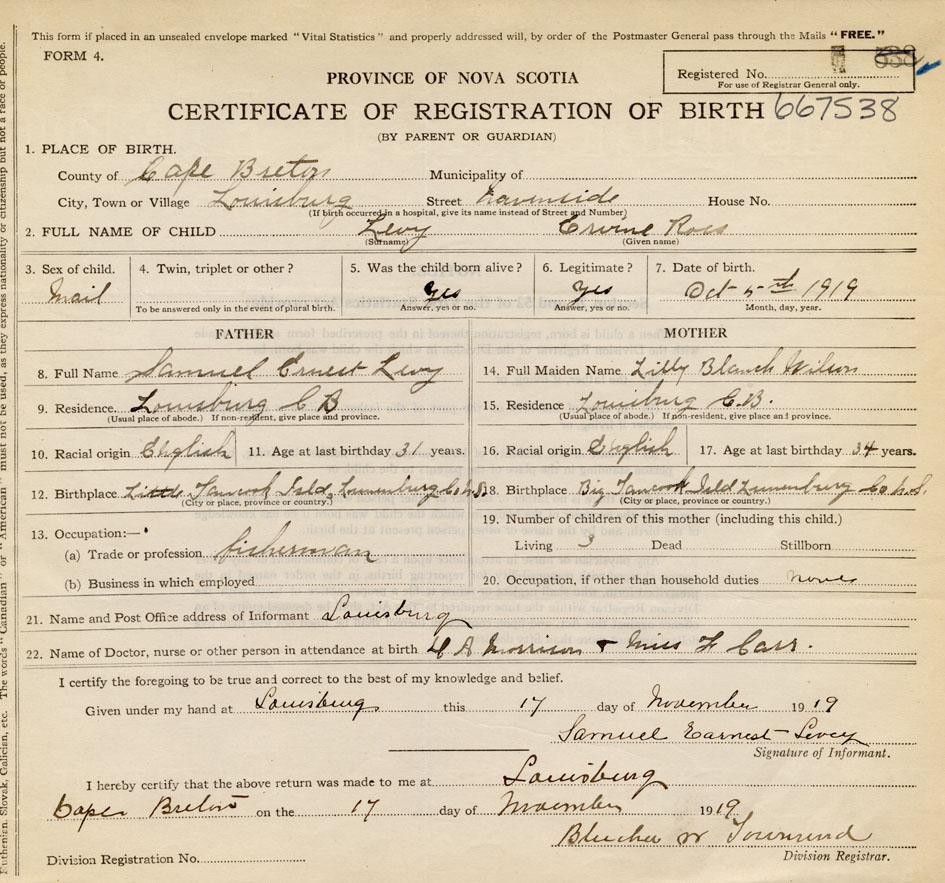 This form if placed in an unsealed envelope marked "Vital Statistics" and properly addressed will, by order of the Postmaster General pass through the Mails "FREE."
FORM 4.
Registered No.
For use of Registrar General only.
PROVINCE OF NOVA SCOTIA
CERTIFICATE OF REGISTRATION OF BIRTH 667538
(BY PARENT OR GUARDIAN)
1. PLACE OF BIRTH.
County of Cape Breton Municipality of
City, Town or Village Louisburg Street Havenside House No.
(If birth occurred in a hospital, give its name instead of Street and Number)
2. FULL NAME OF CHILD Levy Ervine Ross
(Surname) (Given name)
3. Sex of child. 4. Twin, triplet or other? 5. Was the child born alive? 6. Legitimate? 7. Date of birth.
Mail Yes Yes Oct 5th 1919
To be answered only in the event of plural birth. Answer, yes or no. Answer, yes or no. Month, day, year.
FATHER MOTHER
8. Full Name Samuel Ernest Levy 14. Full Maiden Name Lilly Blanch Wilson
9. Residence. Louisburg C B 15. Residence Louisburg C.B.
(Usual place of abode.) If non-resident, give place and province. (Usual place of abode.) If non-resident, give place and province.
10. Racial origin English 11. Age at last birthday 31 years. 16. Racial origin English 17. Age at last birthday 34 years.
12. Birthplace Little Tancook Isld, Lunenburg Co N.S. 18. Birthplace Big Tancook Isld Lunenburg Co N.S
(City or place, province or country.) (City or place, province or country.)
13. Occupation:— 19. Number of children of this mother (including this child.)
(a) Trade or profession fisherman Living 3 Dead Stillborn
(b) Business in which employed 20. Occupation, if other than household duties none
21. Name and Post Office address of Informant Louisburg
22. Name of Doctor, nurse or other person in attendance at birth A Morrison + Miss F Carr.
I certify the foregoing to be true and correct to the best of my knowledge and belief.
Given under my hand at Louisburg this 17 day of November 1919
Samuel Earnest Levey
Signature of Informant.
I hereby certify that the above return was made to me at Louisburg
Cape Breton on the 17 day of November 1919
Blucher W Townsend
Division Registrar.
Division Registration No.
Ruthenian, Slovak, Galician, etc. The words "Canadian" or "American" must not be used, as they express nationality or citizenship but not a race or people.